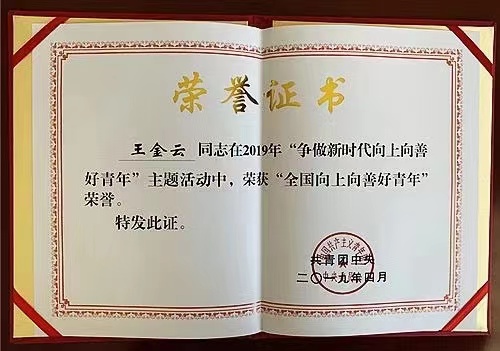 荣誉证书
王金云 同志在2019年“争做新时代向上向善
好青年”主题活动中，荣获“全国向上向善好青年”
荣誉。
特发此证。
共青团中央
二〇一九年四月